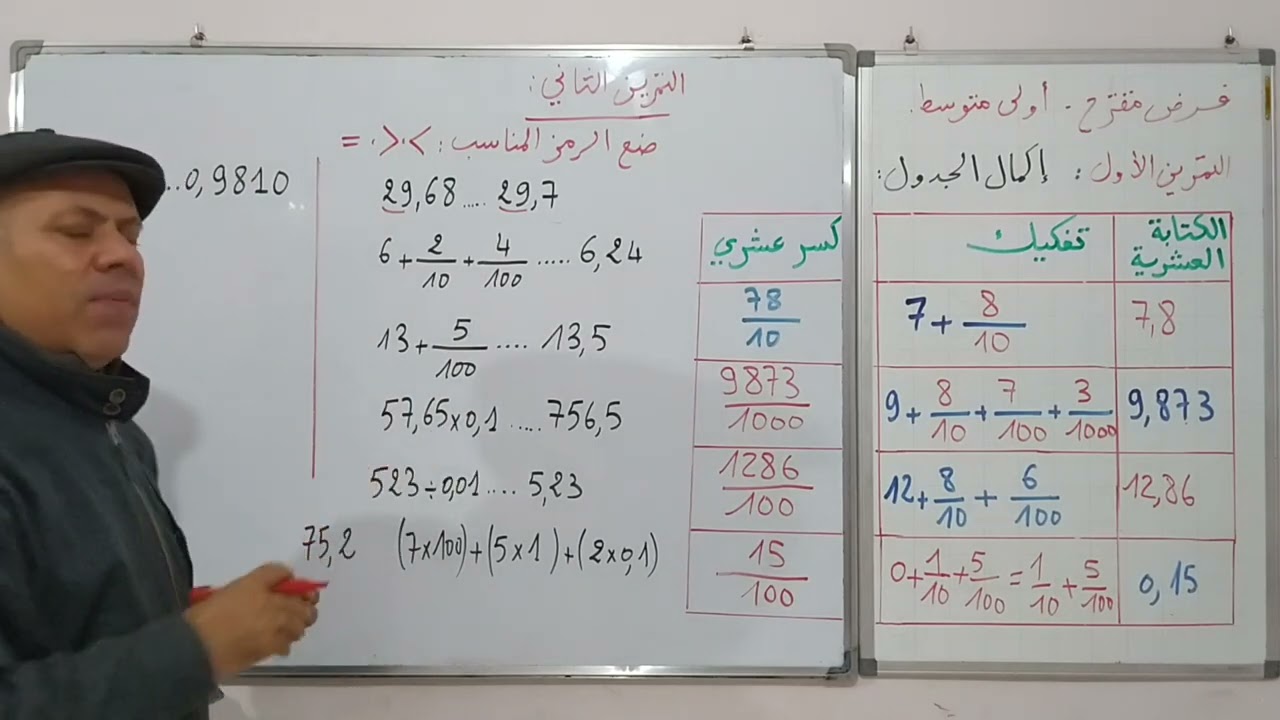 فرض مقترح - أولى متوسط.
التمرين الأول: إكمال الجدول:
الكتابة العشرية | تفكيك | كسر عشري
7,8 | 7 + 8/10 | 78/10
9,873 | 9 + 8/10 + 7/100 + 3/1000 | 9873/1000
12,86 | 12 + 8/10 + 6/100 | 1286/100
0,15 | 0 + 1/10 + 5/100 = 1/10 + 5/100 | 15/100
التمرين الثاني:
ضع الرمز المناسب: > . < . =
29,68 ..... 29,7
6 + 2/10 + 4/100 ..... 6,24
13 + 5/100 .... 13,5
57,65 × 0,1 ..... 756,5
523 ÷ 0,01 .... 5,23
75,2 (7×100)+(5×1)+(2×0,1)
..0,9810